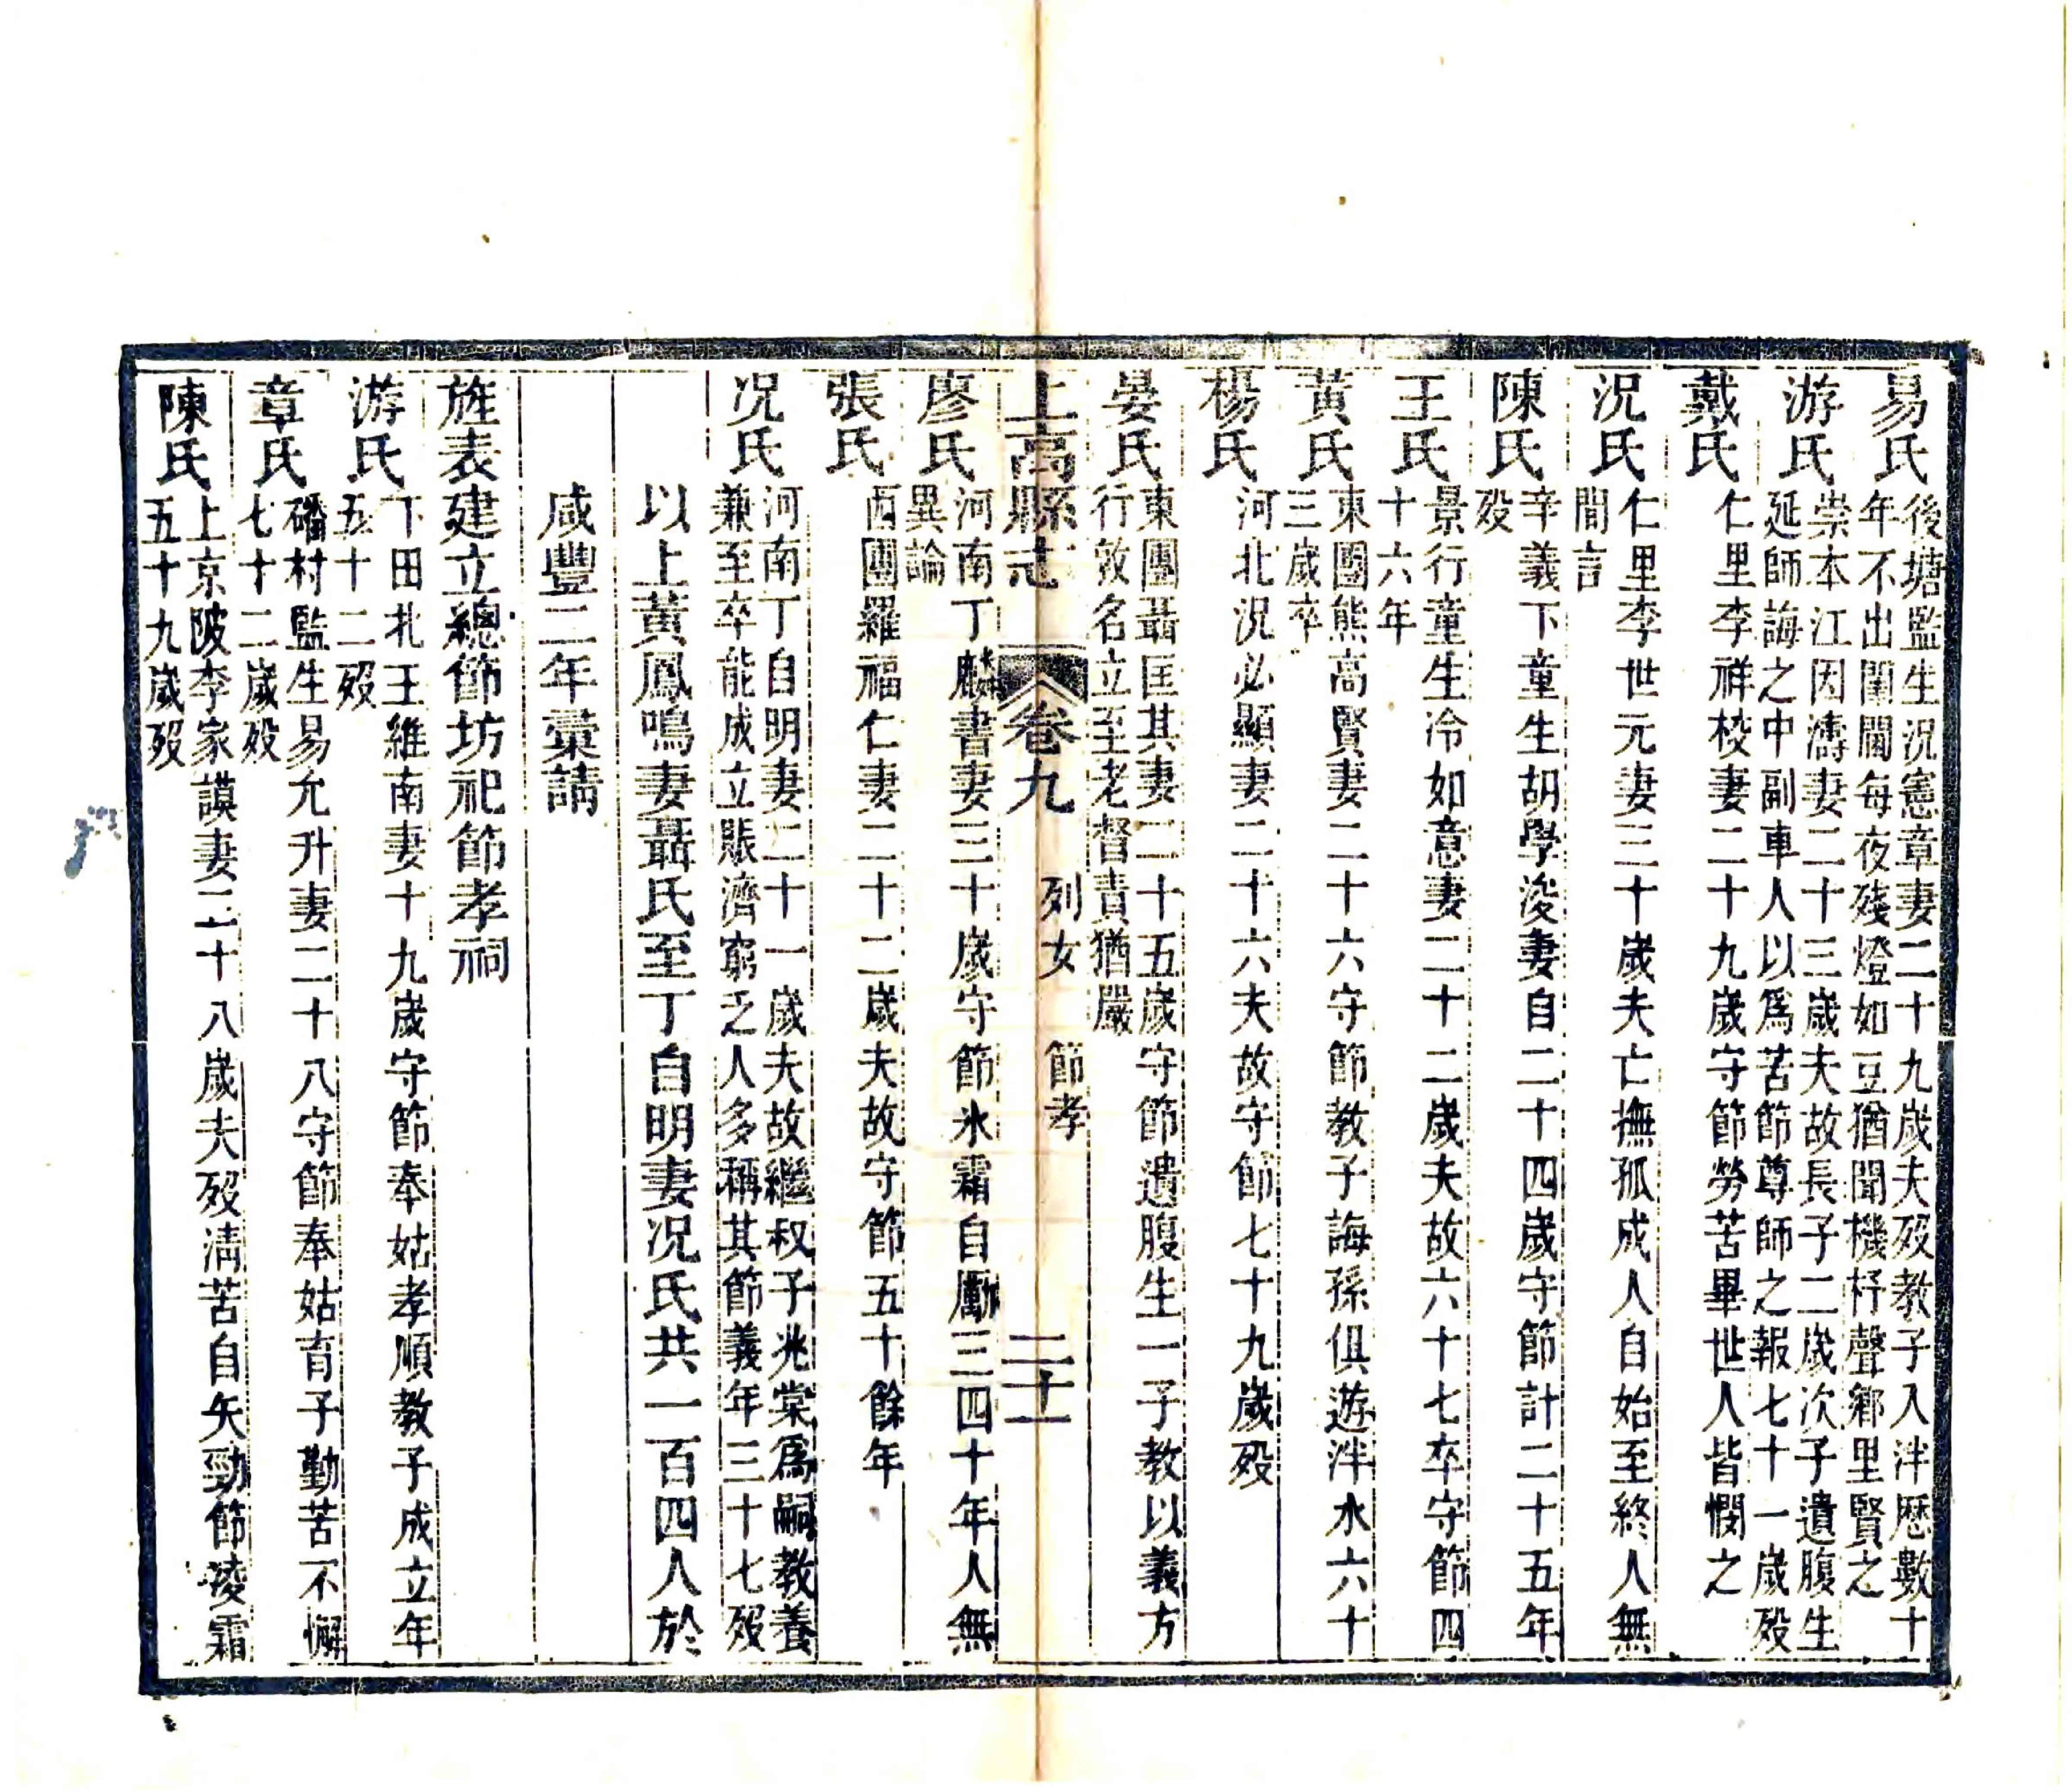 易氏後塘監生況憲章妻二十九歲夫歿教子入泮歷數十
年不出閨閫每夜殘燈如豆猶聞機杼聲鄉里賢之
游氏崇本江因濤妻二十三歲夫故長子二歲次子遺腹生
延師誨之中副車人以爲苦節尊師之報七十一歲歿
戴氏仁里李祥校妻二十九歲守節勞苦畢世人皆憫之
況氏仁里李世元妻三十歲夫亡撫孤成人自始至終人無
間言
陳氏辛義下童生胡學浚妻自二十四歲守節計二十五年
歿
王氏景行童生冷如意妻二十二歲夫故六十七卒守節四
十六年
黃氏東團熊高賢妻二十六守節教子誨孫俱遊泮水六十
三歲卒
楊氏河北況必顯妻二十六夫故守節七十九歲歿
晏氏東團聶匡其妻二十五歲守節遺腹生一子教以義方
行敦名立至老督責猶嚴
上高縣志 卷九 列女 節孝 二十一
廖氏河南丁麟書妻三十歲守節氷霜自勵三四十年人無
異論
張氏西團羅福仁妻二十二歲夫故守節五十餘年
况氏河南丁自明妻二十一歲夫故繼叔子兆棠爲嗣教養
兼至卒能成立賬濟窮乏人多稱其節義年三十七歿
以上黃鳳鳴妻聶氏至丁自明妻况氏共一百四人於
咸豐二年彙請
旌表建立總節坊祀節孝祠
游氏下田扎王維南妻十九歲守節奉姑孝順教子成立年
五十二歿
章氏磻村監生易允升妻二十八守節奉姑育子勤苦不懈
七十二歲歿
陳氏上京陂李家謨妻二十八歲夫歿淸苦自矢勁節凌霜
五十九歲歿